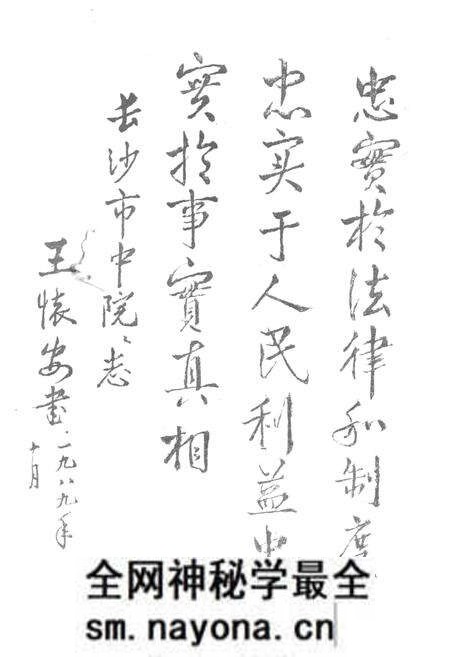 忠實於法律和制度
忠实于人民利益忠
實於事實真相
长沙市中院院志
王懐安書
一九八九年
十月
全网神秘学最全
sm.nayona.cn